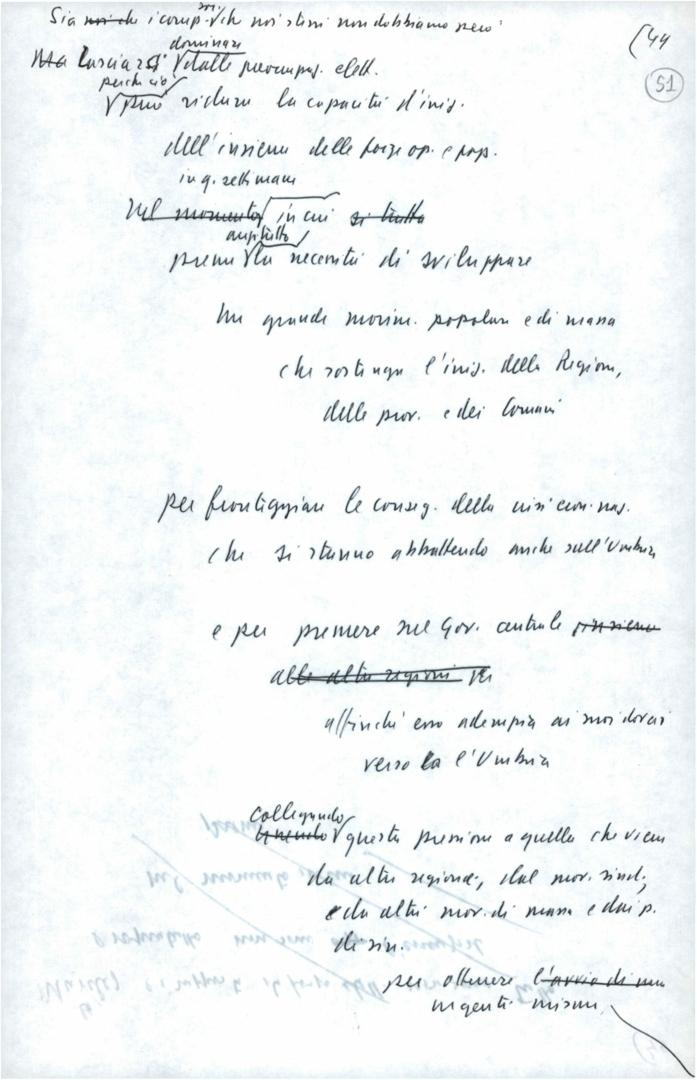 Sia ~~noi~~ che i comp. che noi stessi non dobbiamo però
(44
~~Ma~~ lasciarsi dominare dalle preoccupaz. elett.
51
perché ciò può ridurre la capacità d'iniz.
dell'insieme delle forze op. e pop.
in q. settimane
~~Nel momento~~ in cui ~~si tratta~~
anzitutto
preme la necessità di sviluppare
un grande movim. popolare e di massa
che sostenga l'iniz. della Regione,
delle prov. e dei Comuni
per fronteggiare le conseg. della crisi econ. naz.
che si stanno abbattendo anche sull'Umbria
e per premere sul Gov. centrale ~~insieme~~
~~alle altre regioni per~~
affinché esso adempia ai suoi doveri
verso l'Umbria
collegando
questa pressione a quella che viene
da altre regioni, dal mov. sind.,
e da altri mov. di massa e dai p.
di sin.
per ottenere ~~l'avvio di una~~
urgenti misure